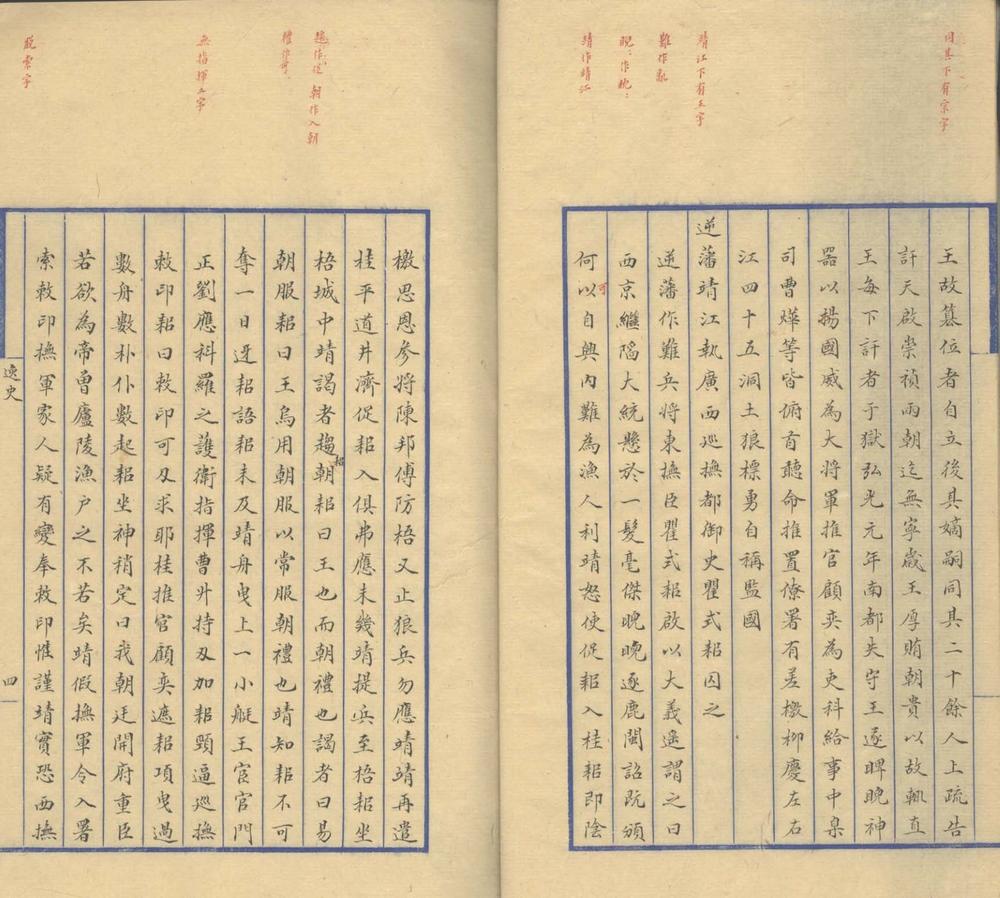 同其下有宗字
靖江下有王字
難作亂
睨、作晚、
靖作靖江
王故篡位者自立後其嫡嗣同其二十餘人上疏告
訐天啟崇禎兩朝迄無寧歲王厚賄朝貴以故輒直
王每下訐者于獄弘光元年南都失守王遂睥睨神
器以揚國威為大將軍推官顧奕為吏科給事中臬
司曹燁等皆俯首聽命推置僚署有差檄柳慶左右
江四十五洞土狼標勇自稱監國
逆藩靖江執廣西巡撫都御史瞿式耜囚之
逆藩作難兵將東撫臣瞿式耜啟以大義遙謂之曰
西京繼陷大統懸於一髮毫傑睨睨逐鹿閩詔既頒
何以自興內難為漁人利靖怒使促耜入桂耜即陰
可
趨作促 朝作入朝
禮作可
無指揮二字
脫索字
檄思恩參將陳邦傅防梧又止狼兵勿應靖靖再遣
桂平道井濟促耜入俱弗應未幾靖提兵至梧耜坐
梧城中靖謁者趨朝耜曰王也而朝禮也謁者曰易
耜
朝服耜曰王烏用朝服以常服朝禮也靖知耜不可
奪一日迓耜語耜未及靖舟曳上一小艇王宦官門
正劉應科羅之護衛指揮曹升持刃加耜頸逼巡撫
敕印耜曰敕印可刃求耶桂推官顧奕遮耜項曳過
數舟數朴仆數起耜坐神稍定曰我朝廷開府重臣
若欲為帝曾廬陵漁户之不若矣靖假撫軍令入署
索敕印撫軍家人疑有變奉敕印惟謹靖實恐西撫
逸史
四